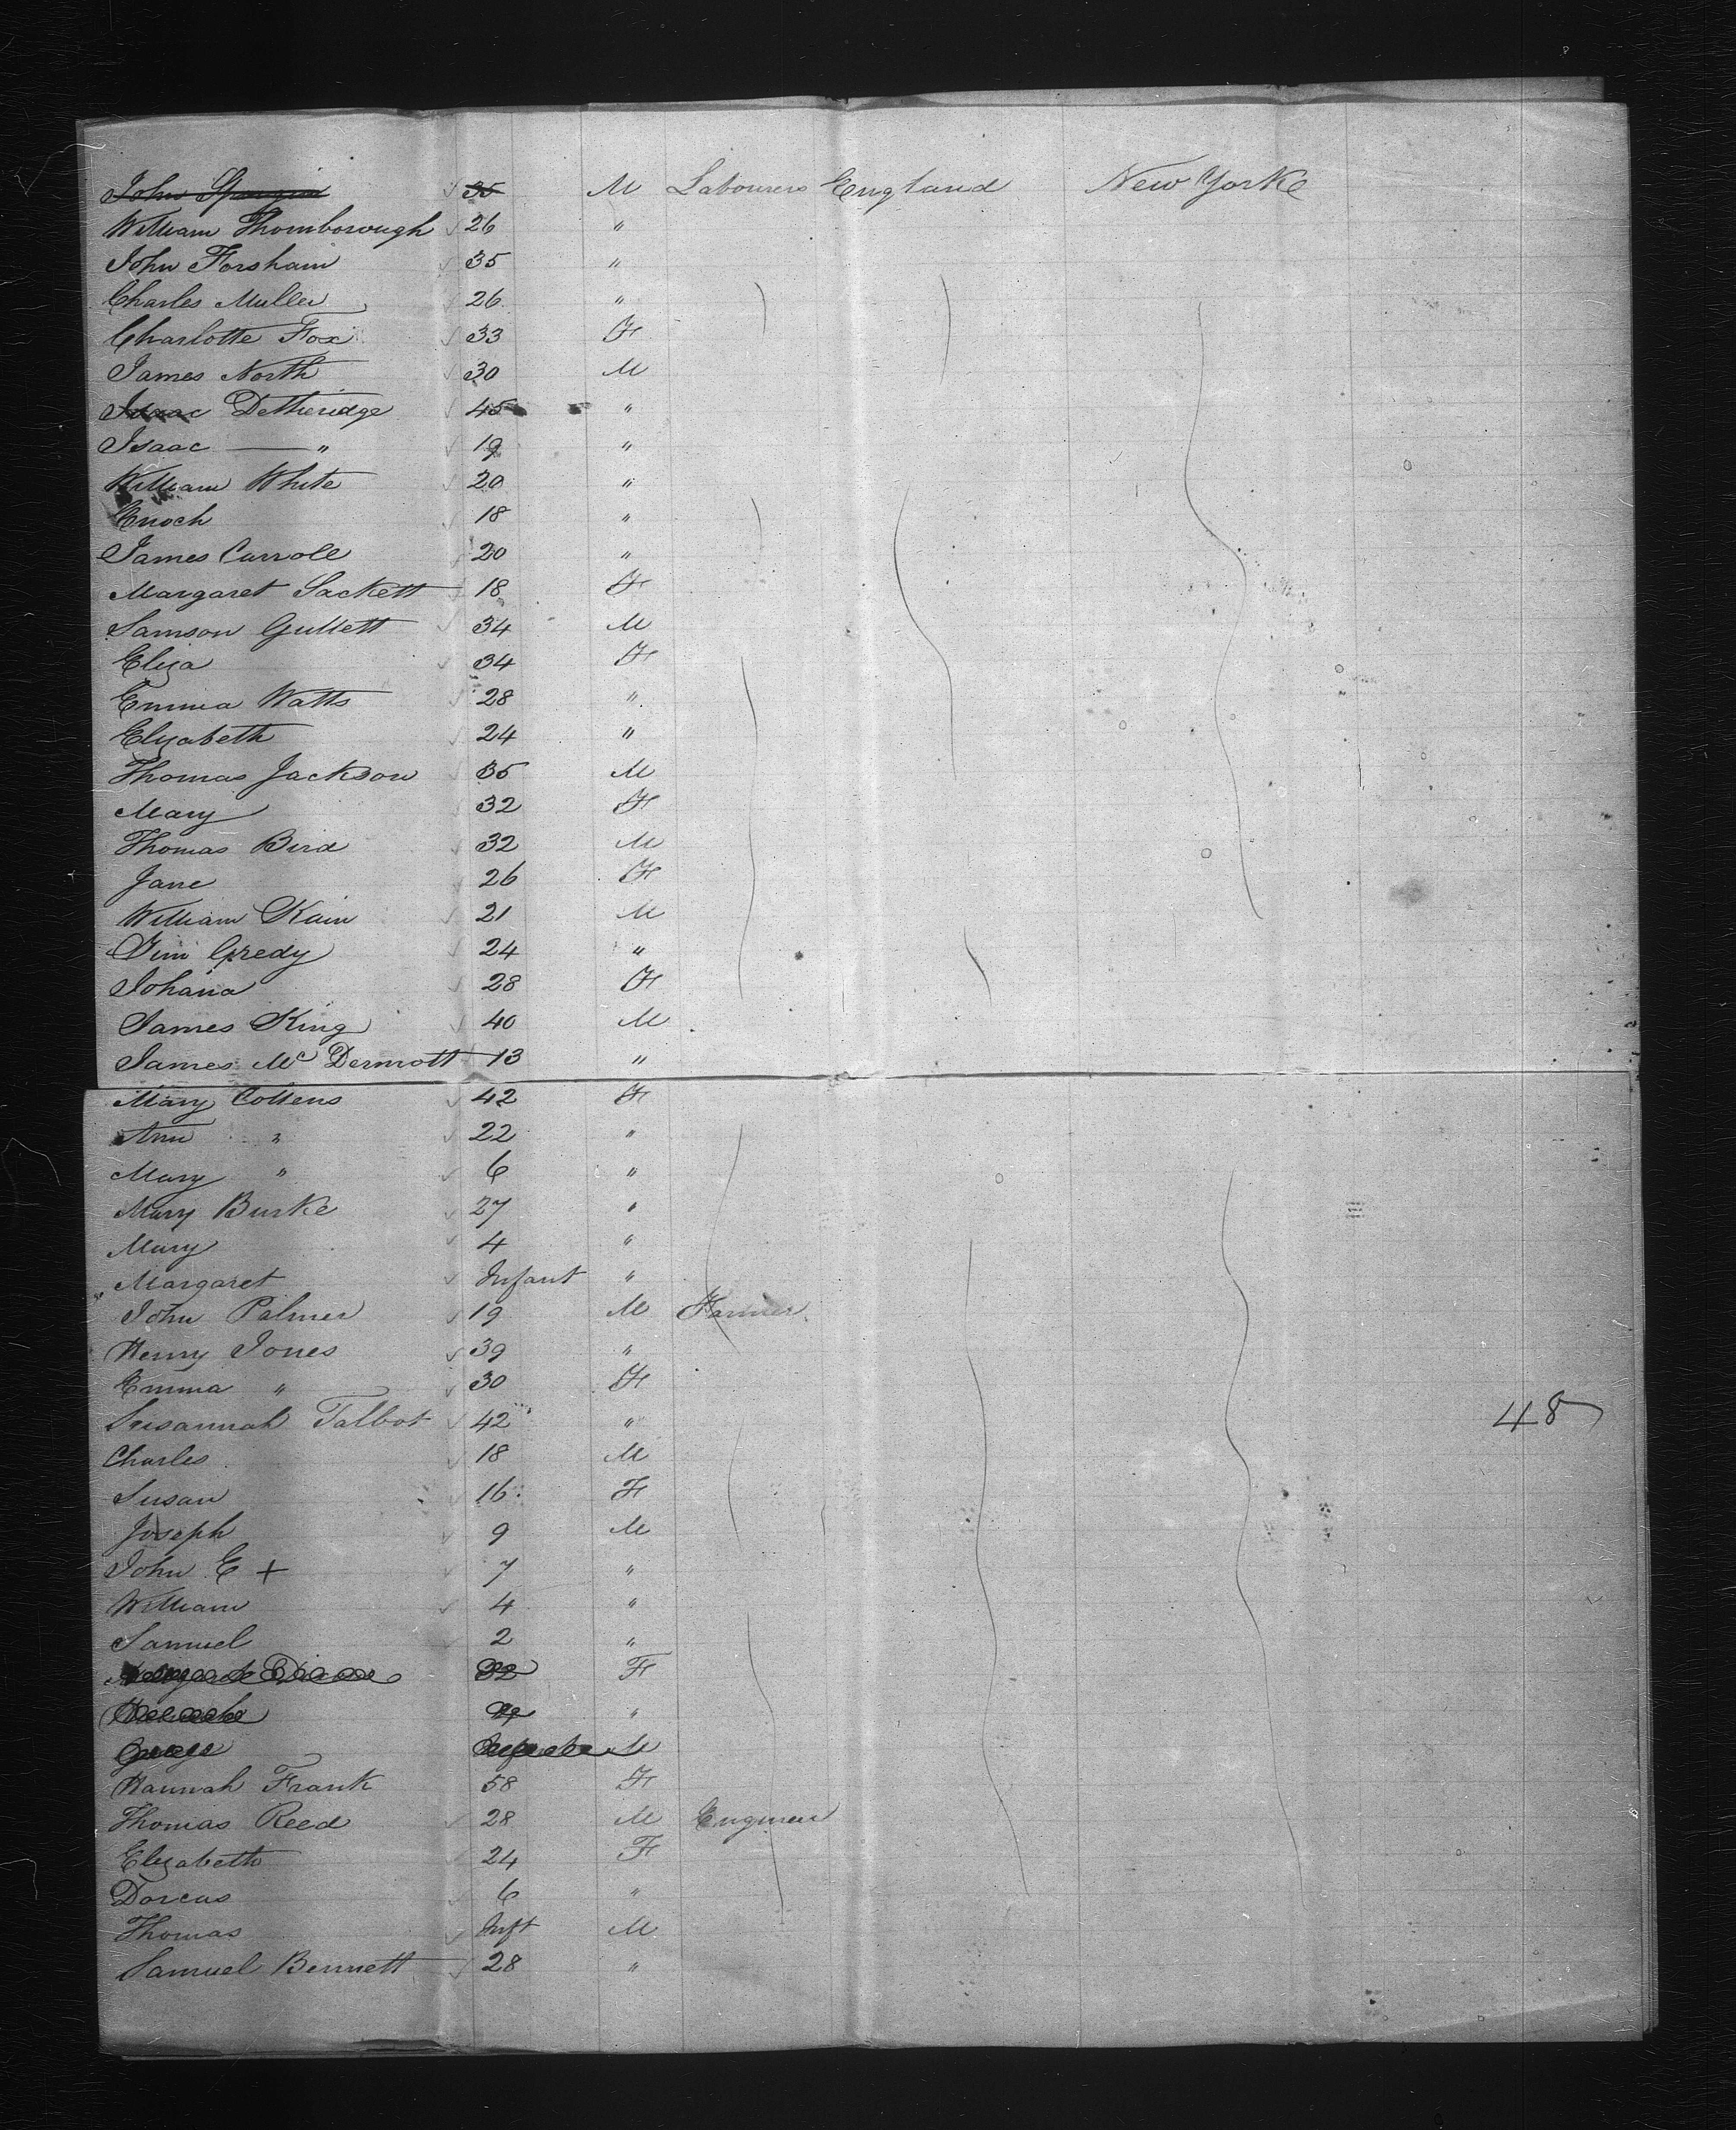 John Spurgin 35 M Labourers England New York
William Thornborough 26 "
John Forsham 35 "
Charles Muller 26 "
Charlotte Fox 33 F
James North 30 M
Isaac Detheridge 45 "
Isaac — " 19 "
William White 20 "
Enoch 18 "
James Carroll 20 "
Margaret Sackett 18 F
Samson Gullett 34 M
Eliza 34 F
Emma Watts 28 "
Elizabeth 24 "
Thomas Jackson 35 M
Mary 32 F
Thomas Bird 32 M
Jane 26 F
William Kain 21 M
Tim Gredy 24 "
Johana 28 F
James King 40 M
James Mc Dermott 13 "
Mary Collens 42 F
Ann " 22 "
Mary " 6 "
Mary Burke 27 "
Mary 4 "
Margaret Infant "
John Palmer 19 M Farmer
Henry Jones 39 "
Emma " 30 F
Susannah Talbot 42 " 48
Charles 18 M
Susan 16 F
Joseph 9 M
John E + 7 "
William 4 "
Samuel 2 "
32 F
"
M
Hannah Frank 58 F
Thomas Reed 28 M Engineer
Elizabeth 24 F
Dorcus 6 "
Thomas Inft M
Samuel Bennett 28 "